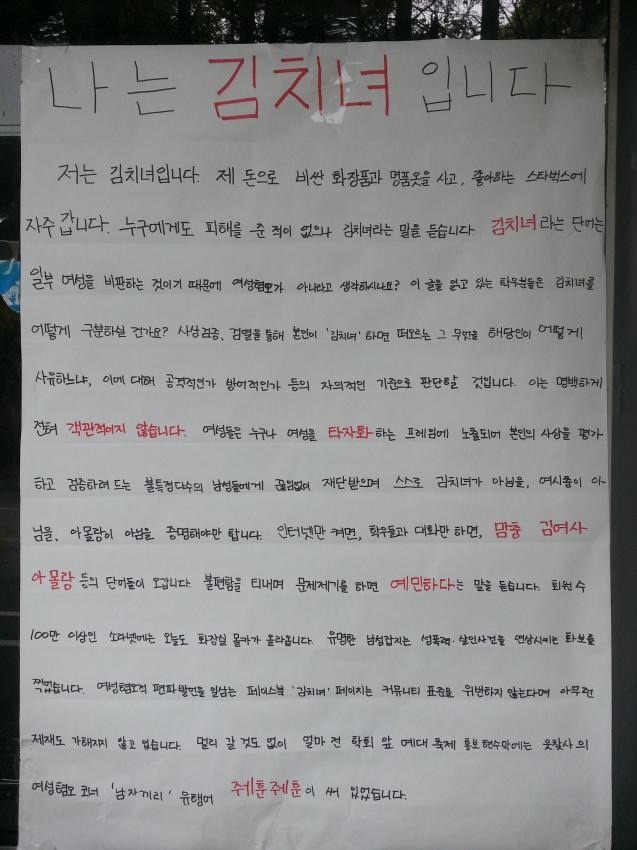 나는 김치녀 입니다
저는 김치녀입니다. 제 돈으로 비싼 화장품과 명품옷을 사고, 좋아하는 스타벅스에
자주 갑니다. 누구에게도 피해를 준 적이 없으나 김치녀라는 말을 듣습니다. 김치녀라는 단어는
일부 여성을 비판하는 것이기 때문에 여성혐오가 아니라고 생각하시나요? 이 글을 읽고 있는 학우분들은 김치녀를
어떻게 구분하실 건가요? 사상검증, 검열을 통해 본인이 '김치녀' 하면 떠오르는 그 무엇을 해당인이 어떻게
사유하느냐, 이에 대해 공격적인가 방어적인가 등의 자의적인 기준으로 판단할 것입니다. 이는 명백하게
전혀 객관적이지 않습니다. 여성들은 누구나 여성을 타자화하는 프레임에 노출되어 본인의 사상을 평가
하고 검증하려 드는 불특정다수의 남성들에게 끊임없이 재단받으며 스스로 김치녀가 아님을, 여시충이 아
님을, 아몰랑이 아님을 증명해야만 합니다. 인터넷만 켜면, 학우들과 대화만 하면, 맘충 김여사
아몰랑 등의 단어들이 오갑니다. 불편함을 티내며 문제제기를 하면 예민하다는 말을 듣습니다. 회원수
100만 이상인 소라넷에는 오늘도 화장실 몰카가 올라옵니다. 유명한 남성잡지는 성폭력·살인사건을 연상시키는 화보를
찍었습니다. 여성혐오적 편파발언을 일삼는 페이스북 '김치녀' 페이지는 커뮤니티 표준을 위반하지 않는다며 아무런
제재도 가해지지 않고 있습니다. 멀리 갈 것도 없이 얼마 전 학회 앞 예대 축제 홍보 현수막에는 웃찾사의
여성혐오 코너 '남자끼리' 유행어 쥬훈쥬훈이 써 있었습니다.